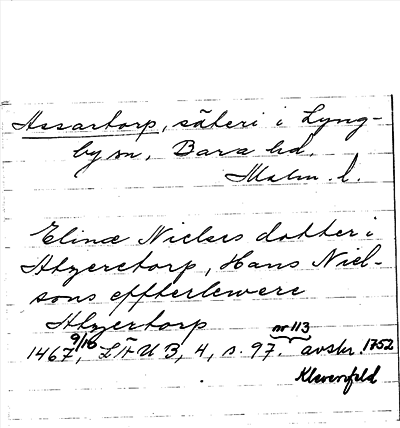 Assartorp, säteri i Lyng-
by sn, Bara hd.
Malm. l.
Elinæ Nielses dotter i
Atzerctorp, Hans Niel-
sons effterlewere
Atzertorp
9/10 nr 113
1467, LÄUB, 4, s. 97. avskr. 1752
Klevenfeld